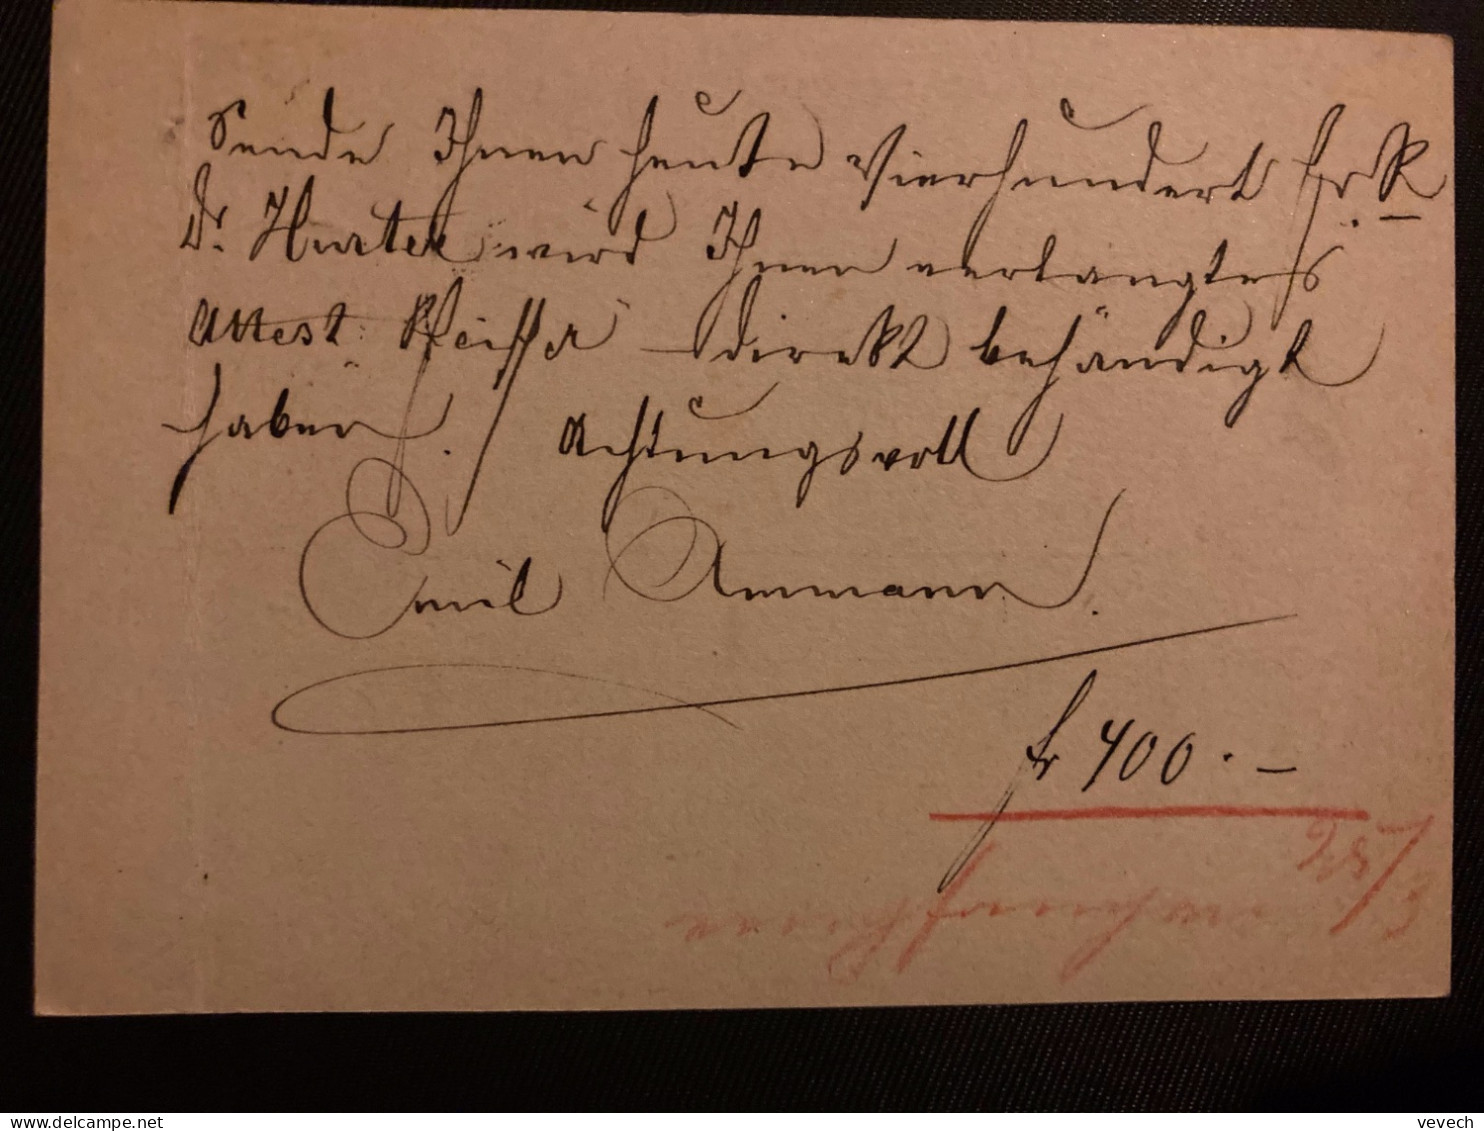 Sende Ihnen heute Vierhundert fr.
Dr. Hurter wird Ihnen verlangtes
Attest Pfeiffer direkt behändigt
haben. Achtungsvoll
Emil Ammann.
fr 400.–
vevech